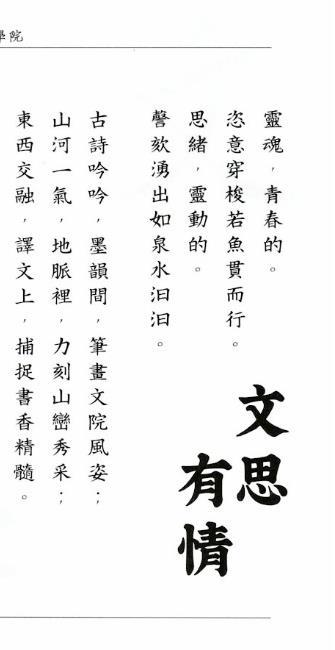 學院
文思
有情
靈魂，青春的。
恣意穿梭若魚貫而行。
思緒，靈動的。
謦欬湧出如泉水汩汩。
古詩吟吟，墨韻間，筆畫文院風姿；
山河一氣，地脈裡，力刻山巒秀采；
東西交融，譯文上，捕捉書香精髓。